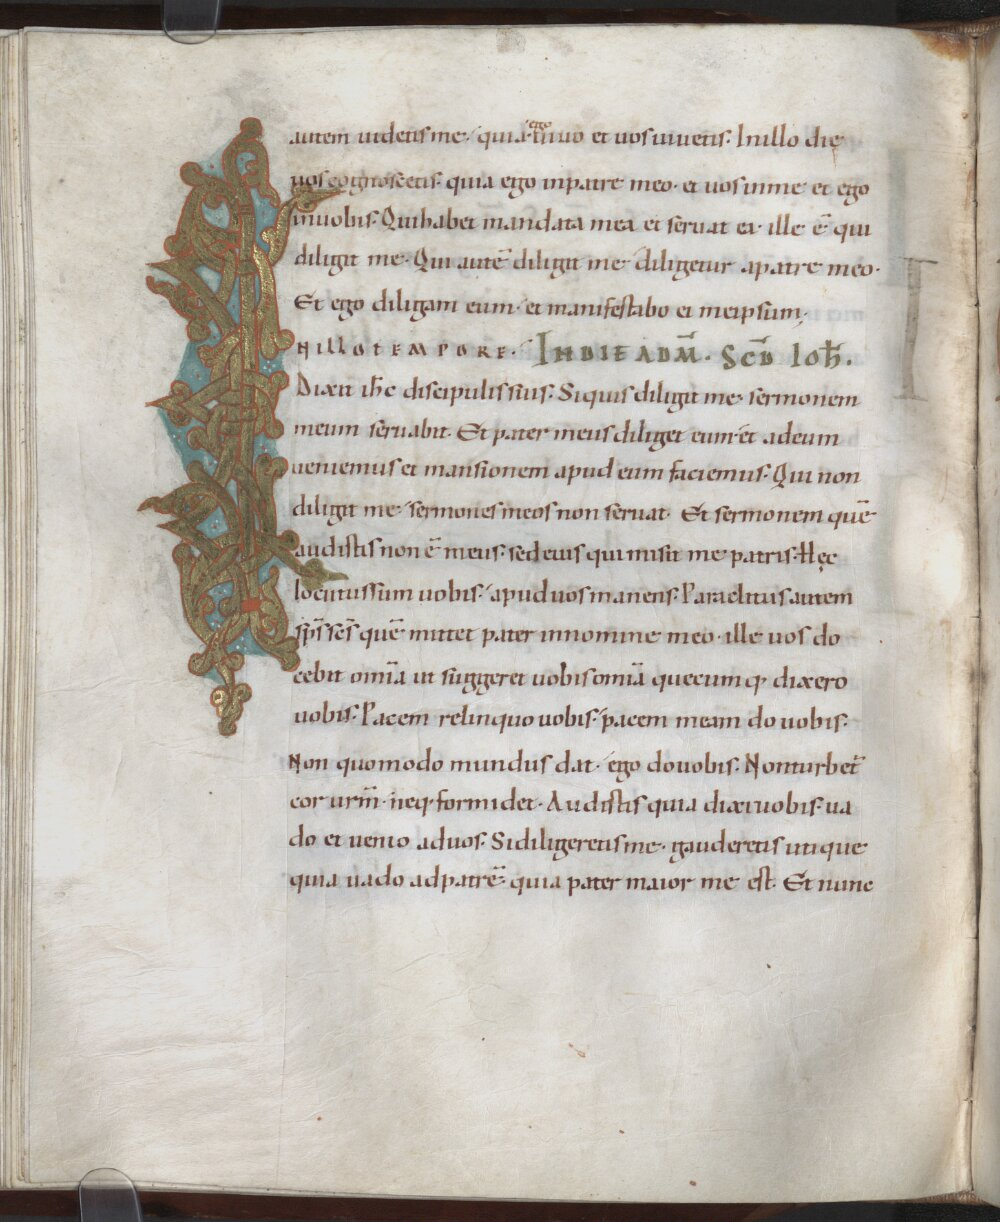 autem uidetis me· quia ego uiuo et uos uiuetis· In illo die
uos cognoscetis· quia ego in patre meo· et uos in me et ego
in uobis· Qui habet mandata mea et seruat ea· ille ē qui
diligit me· Qui autē diligit me· diligetur a patre meo·
Et ego diligam eum· et manifestabo ei meipsum;
NILLO TEMPORE· IN DIE AD M̄· SC̄D IOH̄·
Dixit ihc̄ discipulis suis· Siquis diligit me· sermonem
meum seruabit· Et pater meus diliget eum· et ad eum
ueniemus et mansionem apud eum faciemus· Qui non
diligit me· sermones meos non seruat· Et sermonem quē
audistis non ē meus· sed eius qui misit me patris· Hęc
locutus sum uobis· apud uos manens· Paraclitus autem
sp̄s sc̄s quē mittet pater in nomine meo· ille uos do
cebit om̄ia ut suggeret uobis om̄ia quecumq; dixero
uobis· Pacem relinquo uobis· pacem meam do uobis·
Non quomodo mundus dat· ego do uobis· Non turbet̄
cor urm̄· neq; formidet· Audistis quia dixi uobis· ua
do et uenio ad uos· Si diligeretis me· gauderetis utique
quia uado ad patrē· quia pater maior me est· Et nunc